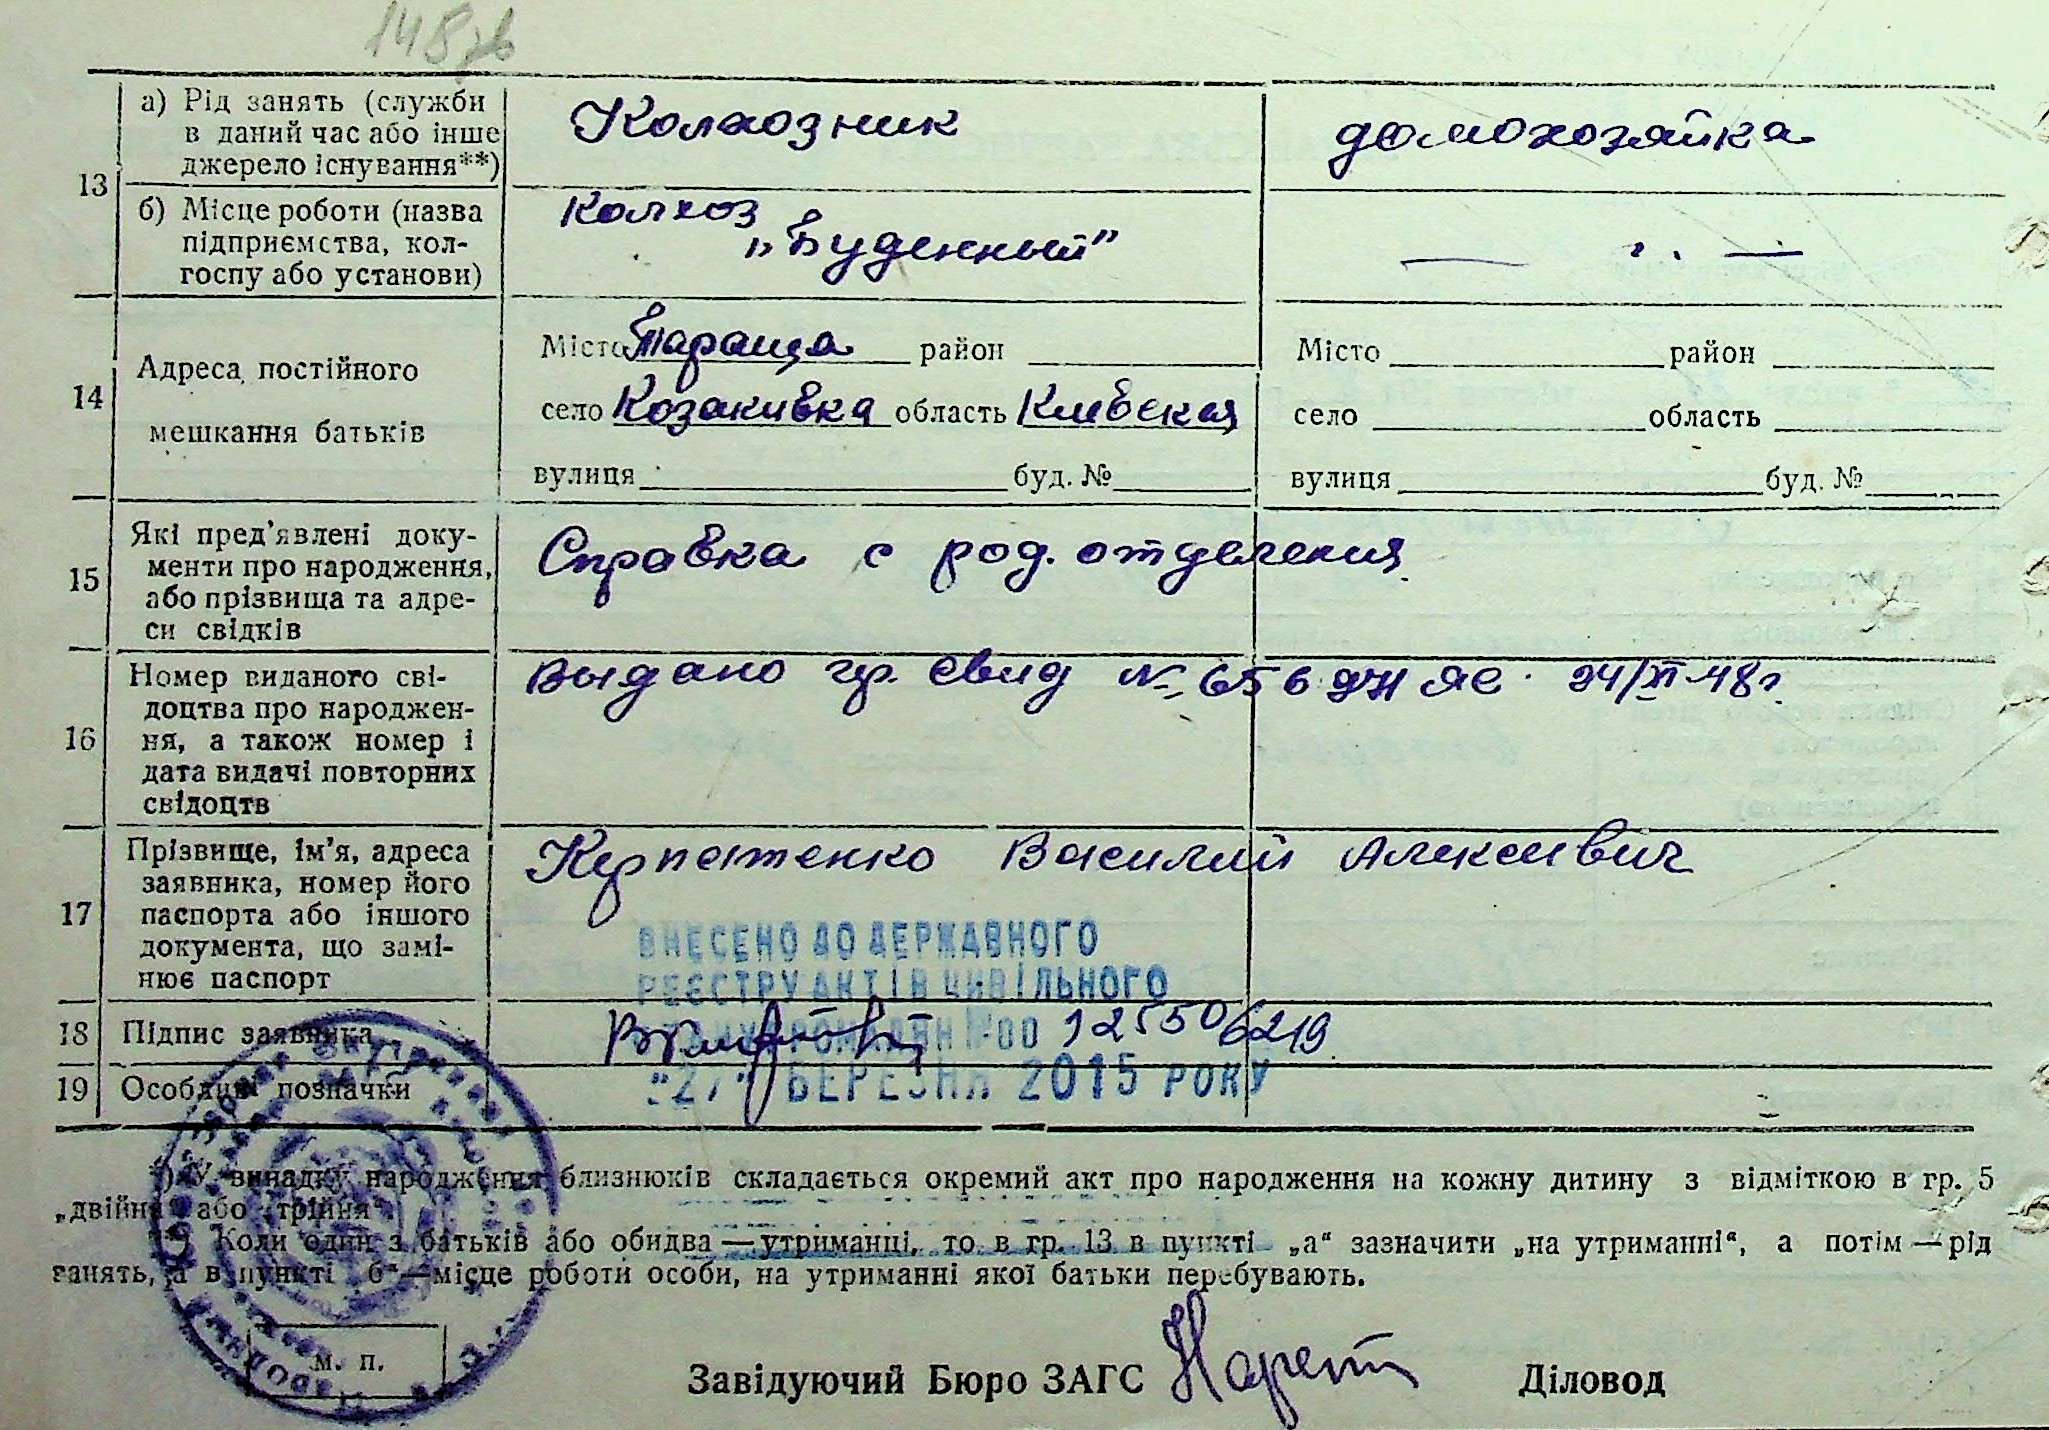 148 зв
13 а) Рід занять (служби
в даний час або інше
джерело існування**)
Колхозник
домохозяйка
б) Місце роботи (назва
підприємства, кол-
госпу або установи)
Колхоз
„Буденный"
— " —
14 Адреса постійного
мешкання батьків
Місто Тараща район
село Козакивка область Киевская
вулиця буд. №
Місто район
село область
вулиця буд. №
15 Які пред'явлені доку-
менти про народження,
або прізвища та адре-
си свідків
Справка с род. отделения
16 Номер виданого сві-
доцтва про народжен-
ня, а також номер і
дата видачі повторних
свідоцтв
Выдано гр. свид № 656 ЯС 24/XI-48 г.
17 Прізвище, ім'я, адреса
заявника, номер його
паспорта або іншого
документа, що замі-
нює паспорт
Василий Алексеевич
ВНЕСЕНО ДО ДЕРЖАВНОГО
РЕЄСТРУ АКТІВ ЦИВІЛЬНОГО
СТАНУ ГРОМАДЯН №00 125506219
"27" БЕРЕЗНЯ 2015 РОКУ
18 Підпис заявника
19 Особливі позначки
*) У винадку народження близнюків складається окремий акт про народження на кожну дитину з відміткою в гр. 5
„двійня" або „трійня".
**) Коли один з батьків або обидва — утриманці, то в гр. 13 в пункті „а" зазначити „на утриманні", а потім — рід
занять, а в пункті „б" — місце роботи особи, на утриманні якої батьки перебувають.
м. п.
Завідуючий Бюро ЗАГС
Діловод